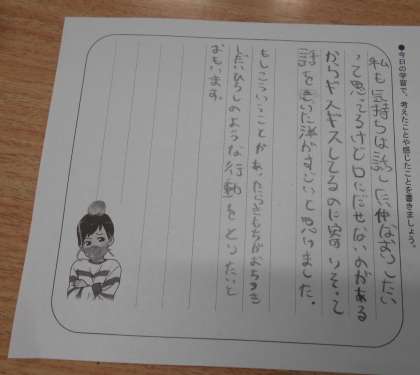 ●今日の学習で、考えたことや感じたことを書きましょう。
私も気持ちは話したい仲なおりしたい
って思ってるけど口にだせないのがある
からギスギスしてるのに寄りそって
話を きいた洋がすごいと思いました。
もしこういうことがあったらきもちがおちつき
しだいひろしのような行動をとりたいと
おもいます。